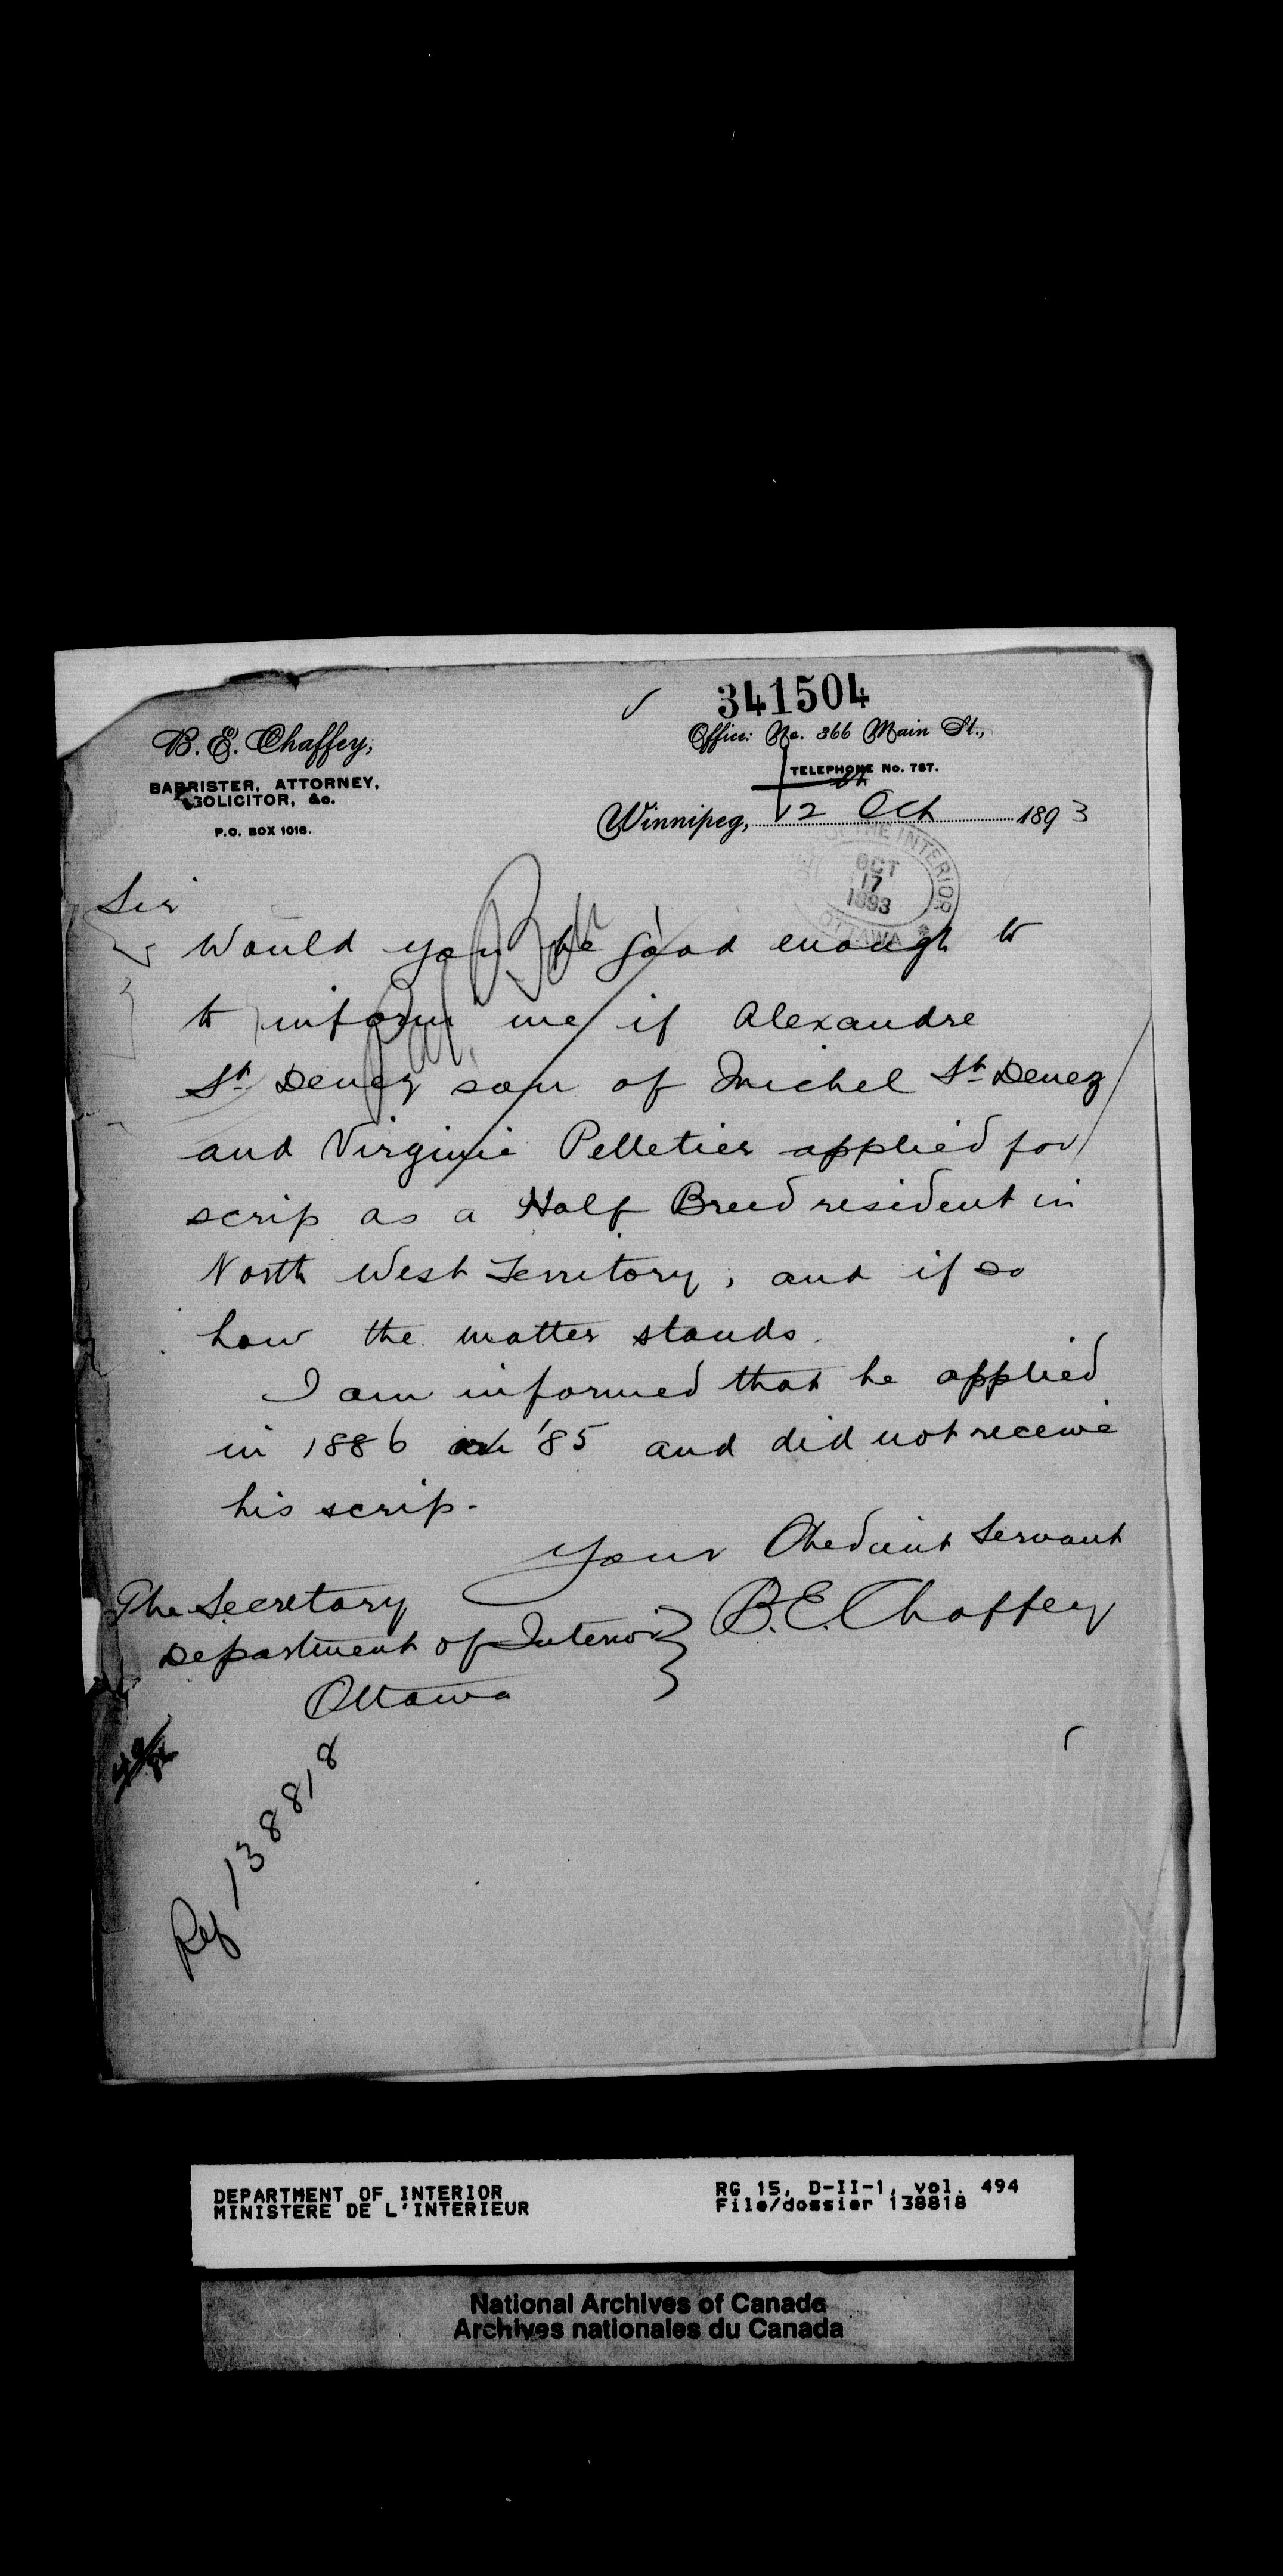 341504
B. E. Chaffey,
BARRISTER, ATTORNEY,
SOLICITOR, &c.
P.O. BOX 1016.
Office: No. 366 Main St.,
TELEPHONE No. 787.
Winnipeg, 12 Oct 1893
DEPT OF THE INTERIOR
OCT
17
1893
OTTAWA
Sir
Would you be good enough to
to inform me if Alexandre
St Denez son of Michel St Denez
and Virginie Pelletier applied for
scrip as a Half Breed resident in
North West Territory, and if so
how the matter stands.
I am informed that he applied
in 1886 or '85 and did not receive
his scrip.
Your Obedient Servant
B.E. Chaffey
The Secretary
Department of Interior
Ottawa
Ref 138818
DEPARTMENT OF INTERIOR
MINISTERE DE L'INTERIEUR
RG 15, D-II-1, vol. 494
File/dossier 138818
National Archives of Canada
Archives nationales du Canada